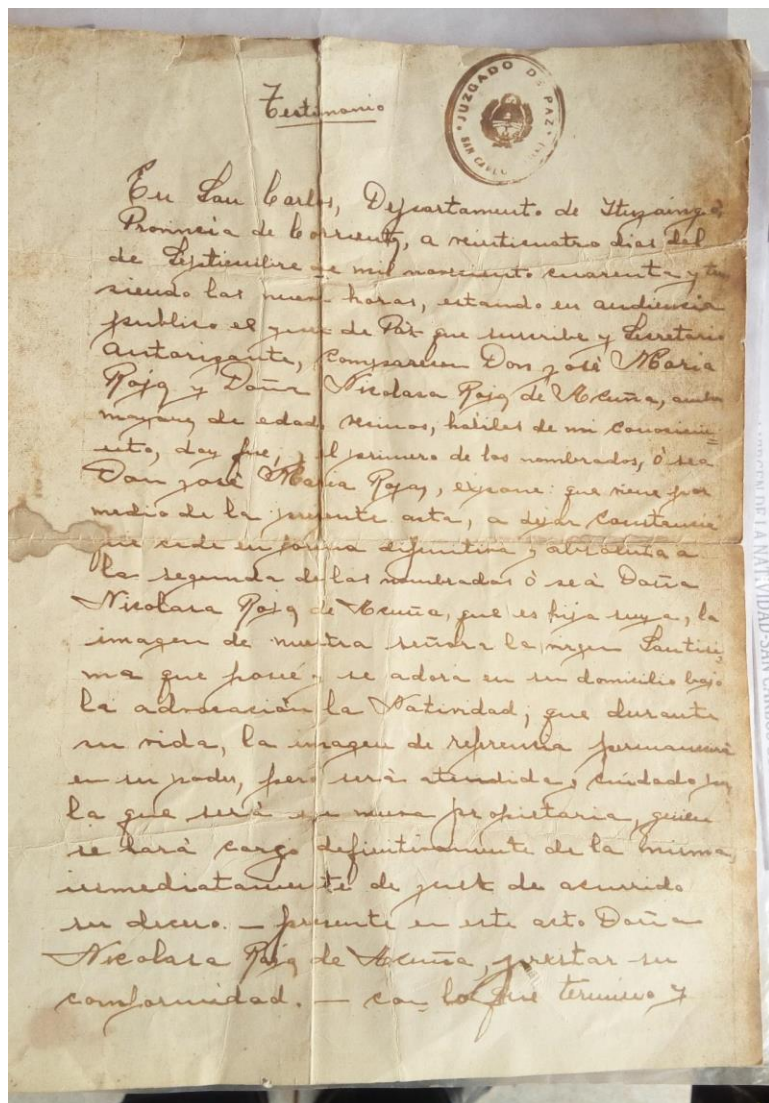 Testimonio
JUZGADO DE PAZ
SAN CARLOS
En San Carlos, Departamento de Ituzaingó,
Provincia de Corrientes, a veinticuatro dias del
de Septiembre de mil novecientos cuarenta y tres
siendo las nueve horas, estando en audiencia
publico el juez de Paz que suscribe y Secretario
autorizante, comparecen Don José Maria
Rojas y Doña Nicolasa Rojas de Acuña, ambos
mayores de edad, vecinos, hábiles de mi conocimi-
ento, doy fue; y el primero de los nombrados, ó sea
Don José Maria Rojas, expone: que viene por
medio de la presente acta, a dejar constancia
que cede en forma difinitiva y absoluta a
la segunda de las nombradas ó seá Doña
Nicolasa Rojas de Acuña, que es hija suya, la
imagen de nuestra señora la virgen Santisi-
ma que posee y se adora en su domicilio bajo
la advocasión la Natividad; que durante
su vida, la imagen de referensia permanecerá
en su poder, peró será atendida y cuidado por
la que será su nueva propietaria, quien
se hará cargo definitivamente de la misma,
inmediatamente de ocurrido
su deceso. — presente en este acto Doña
Nicolasa Rojas de Acuña, prestar su
conformidad. — con lo que termino y
NATIVIDAD-SAN CARLOS